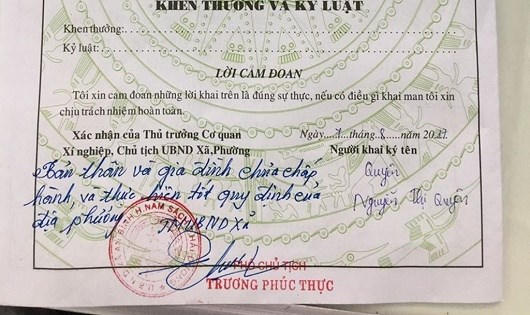 KHEN THƯỞNG VÀ KỶ LUẬT
Khen thưởng:
Kỷ luật:
LỜI CAM ĐOAN
Tôi xin cam đoan những lời khai trên là đúng sự thực, nếu có điều gì khai man tôi xin
chịu trách nhiệm hoàn toàn.
Xác nhận của Thủ trưởng Cơ quan
Xí nghiệp, Chủ tịch UBND Xã,Phường
Ngày 7 tháng 8 năm 2017
Người khai ký tên
Bản thân và gia đình chưa chấp
hành, và thực hiện tốt quy định của
địa phương
TM UBND Xã
Quyên
Nguyễn Thị Quyên
H. NAM SÁCH
PHÓ CHỦ TỊCH
TRƯƠNG PHÚC THỰC